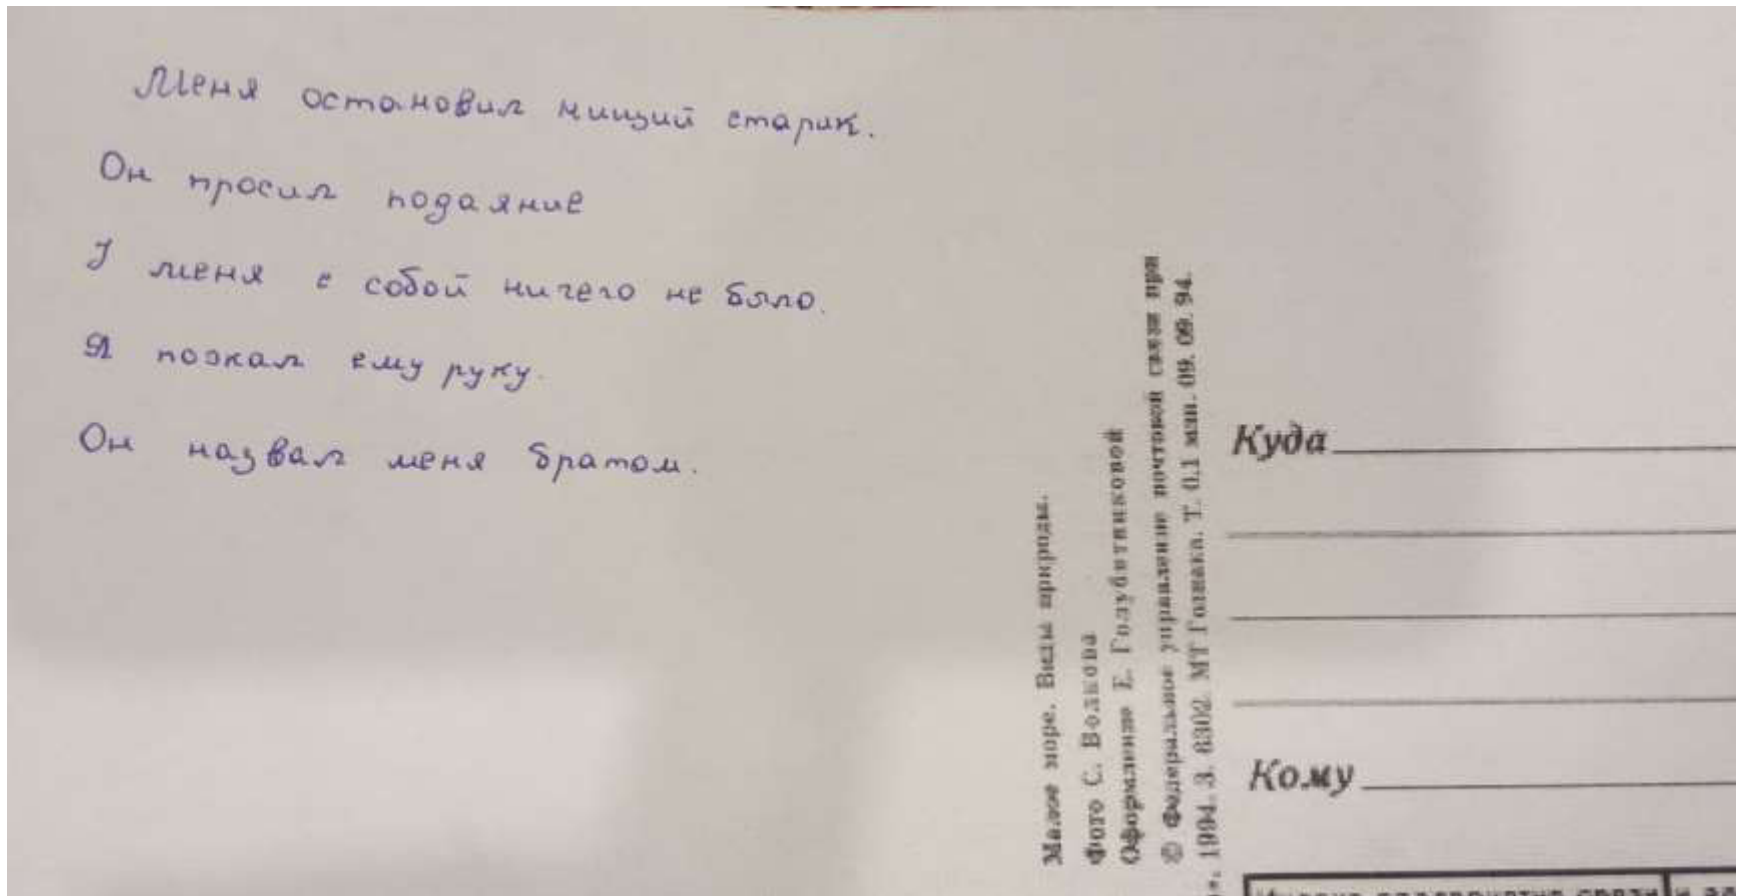 Меня остановил нищий старик.
Он просил подаяние
У меня с собой ничего не было.
Я пожал ему руку.
Он назвал меня братом.
Малое море. Виды природы.
Фото С. Волкова
Оформление Е. Голубятниковой
© Федеральное управление почтовой связи при
1994. З. 6302. МТ Гознака. Т. 0.1 млн. 09. 09. 94.
Куда
Кому
Индекс предприятия связи и ад